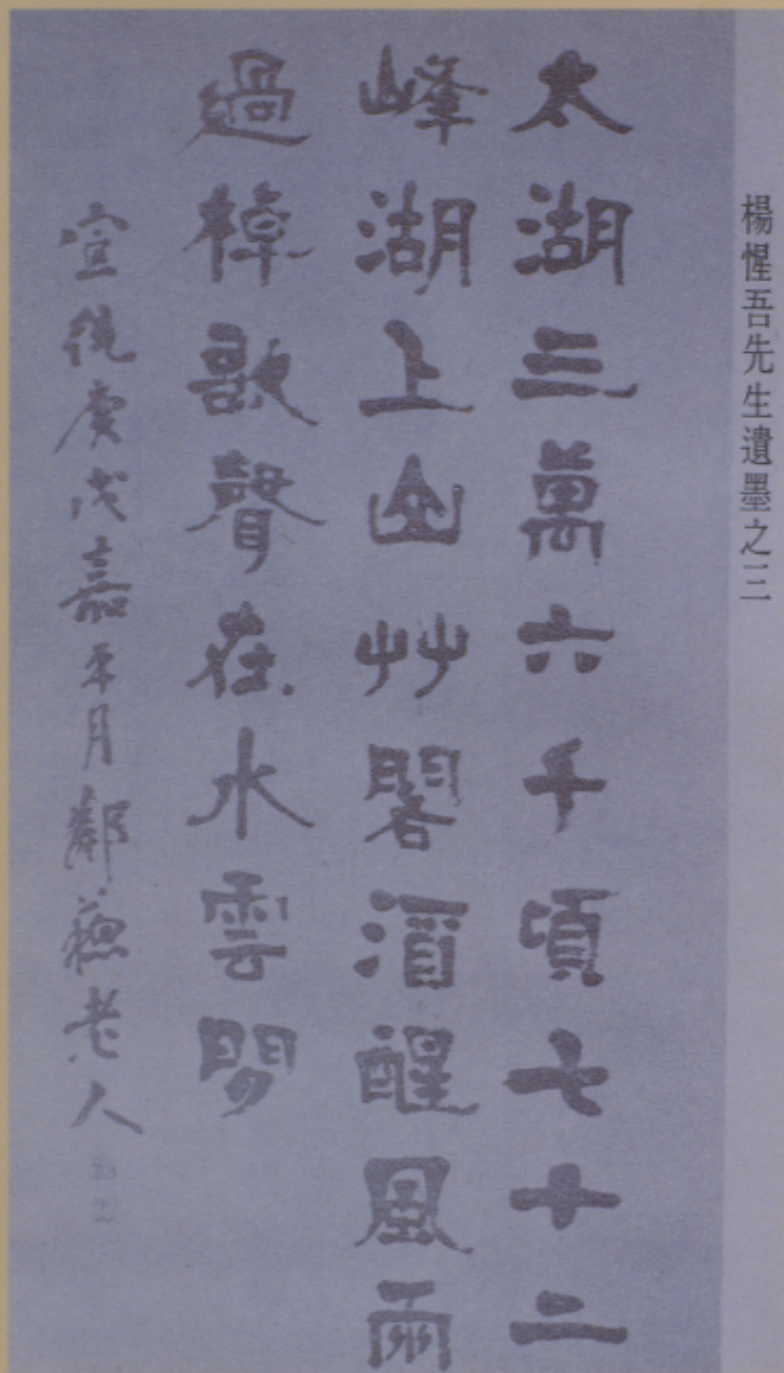 楊惺吾先生遺墨之三
太湖三萬六千頃七十二
峰湖上山艸閣酒醒風雨
過棹歌聲在水雲閒
宣統庚戌嘉平月鄰蘇老人